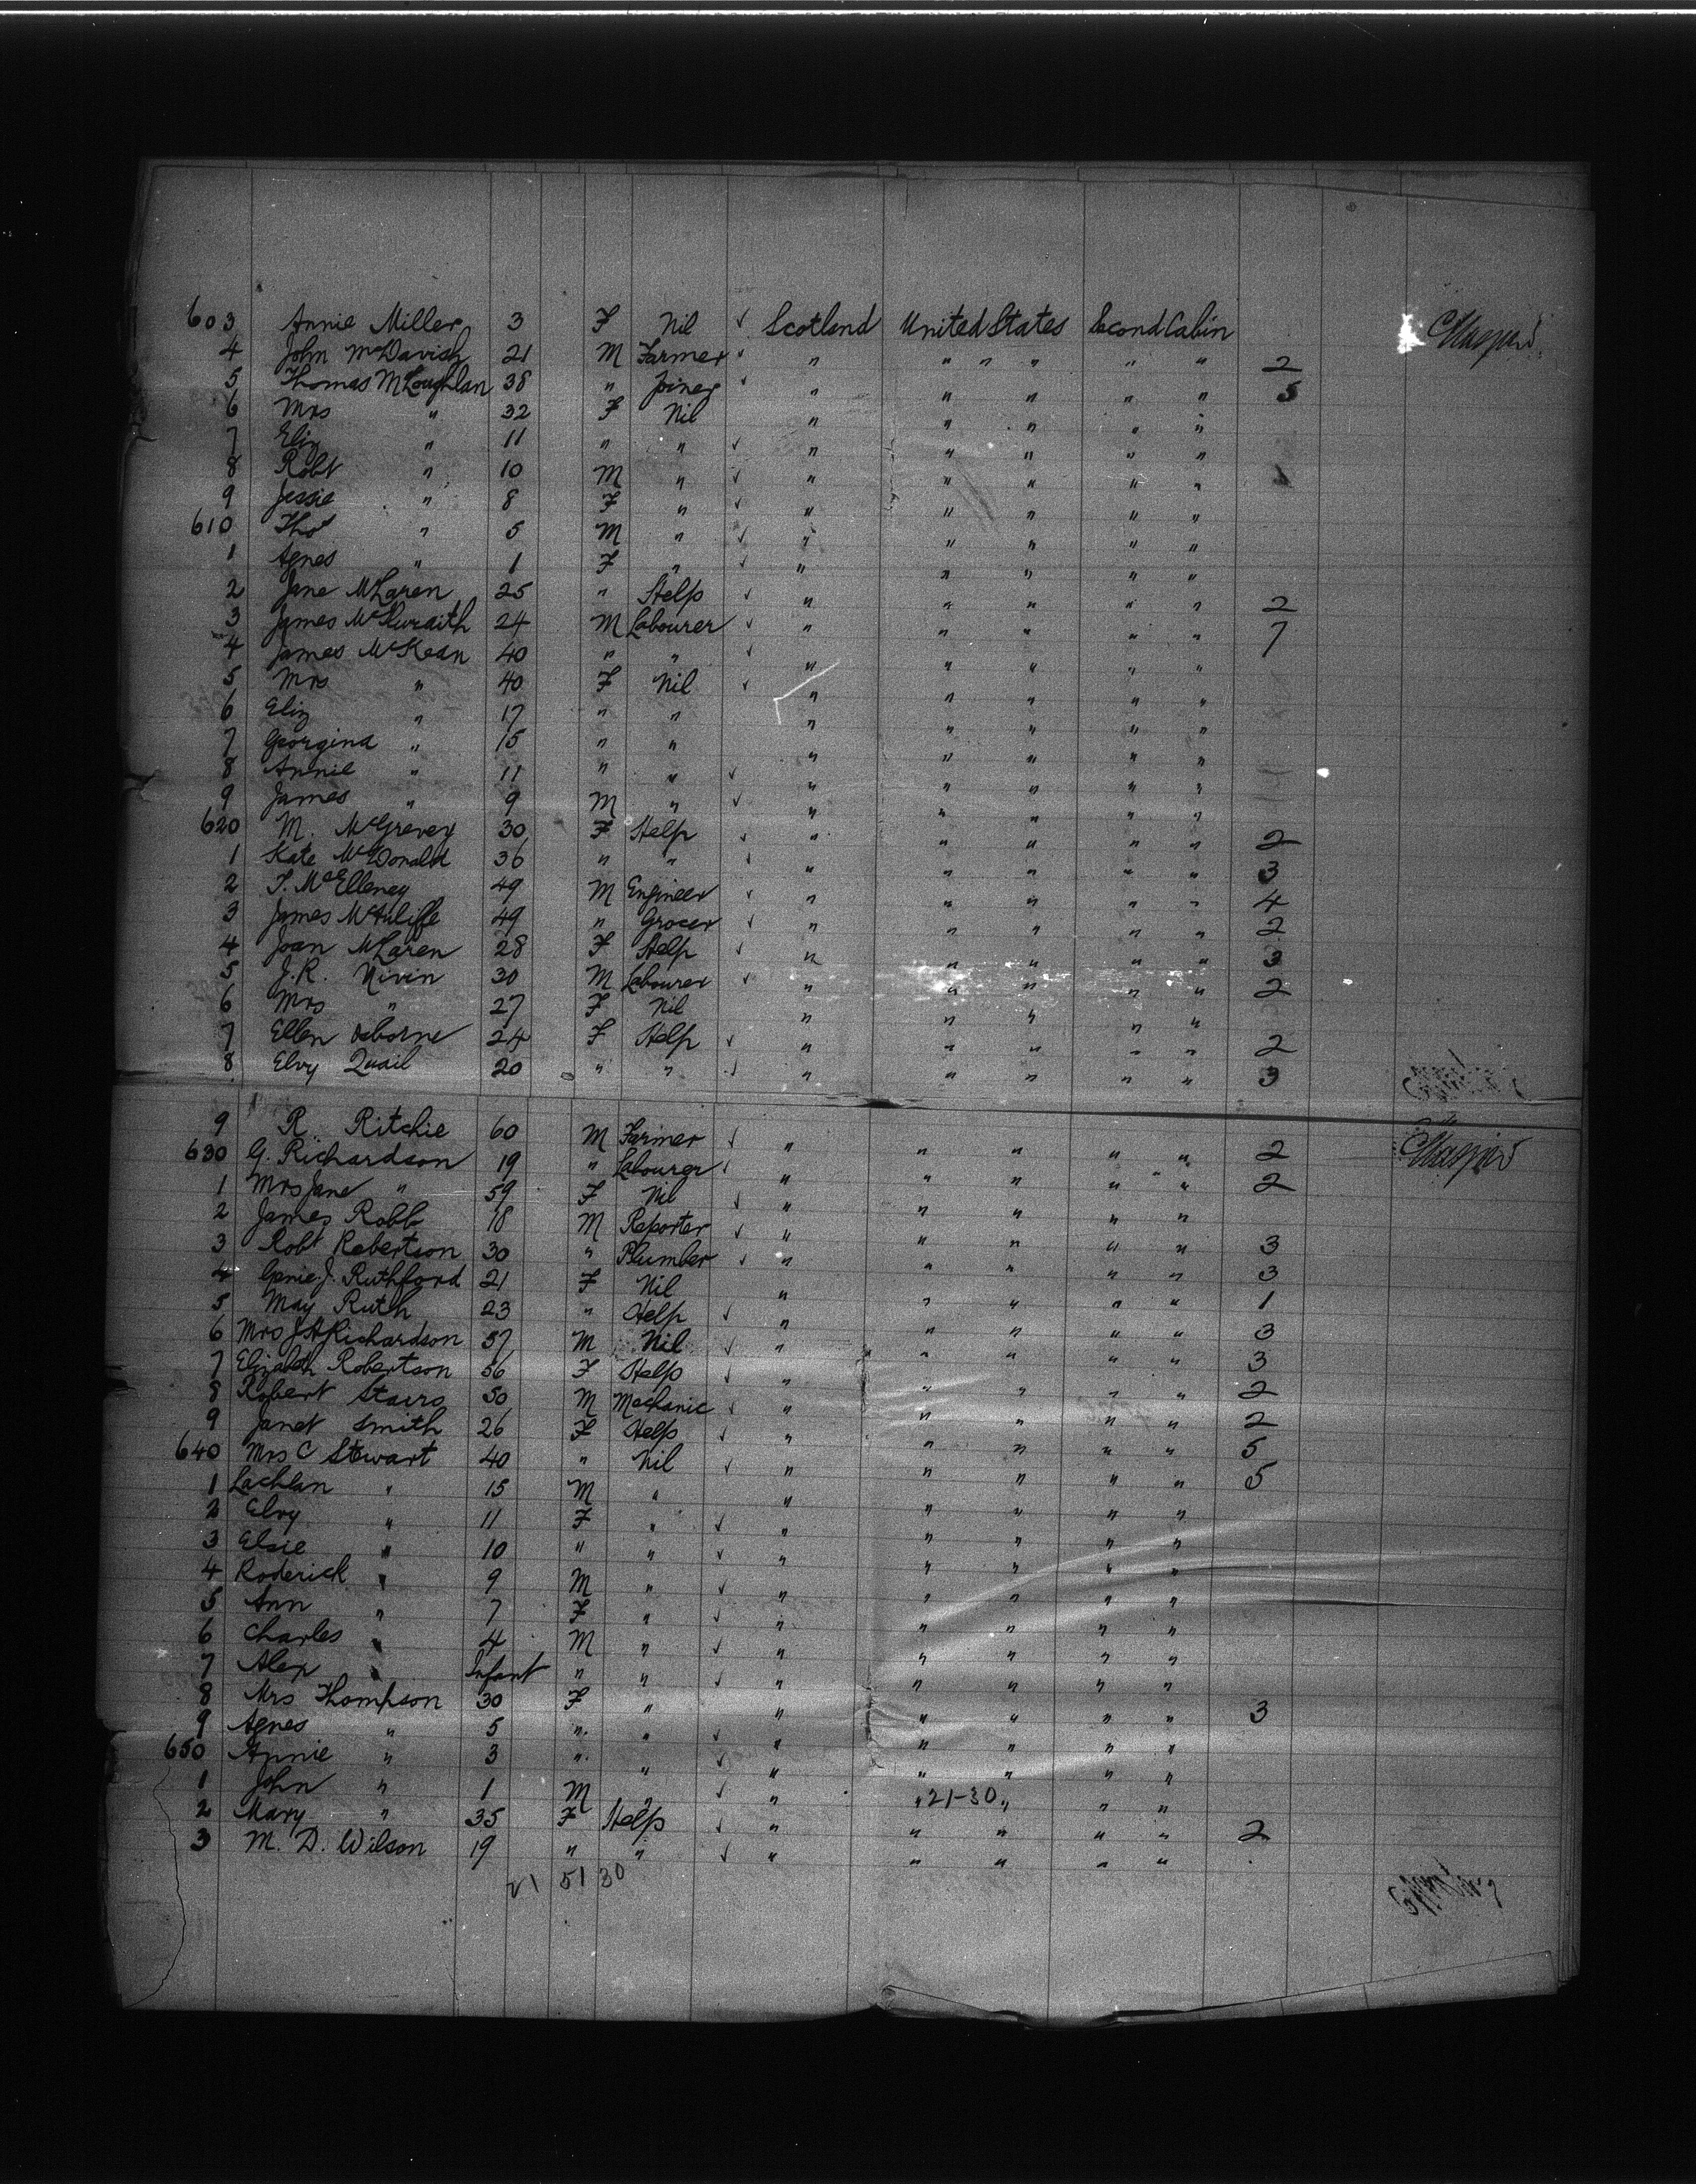 603 Annie Miller 3 F Nil ✓ Scotland United States Second Cabin
4 John McDavish 21 M Farmer ✓ " " " " " " 2
5 Thomas McLoughlan 38 " Joiner ✓ " " " " " 5
6 Mrs " 32 F Nil " " " " "
7 Eliz " 11 " " ✓ " " " " "
8 Robt " 10 M " ✓ " " " " "
9 Jessie " 8 F " ✓ " " " " "
610 Thos " 5 M " ✓ " " " " "
1 Agnes " 1 F " ✓ " " " " "
2 Jane McLaren 25 " Help ✓ " " " " " 2
3 James McIlwraith 24 M Labourer ✓ " " " " " 7
4 James McKean 40 " " ✓ " " " " "
5 Mrs " 40 F Nil ✓ " " " " "
6 Eliz " 17 " " " " " " "
7 Georgina " 15 " " " " " " "
8 Annie " 11 " " ✓ " " " " "
9 James " 9 M " ✓ " " " " "
620 M. McGrevey 30 F Help ✓ " " " " " 2
1 Kate McDonald 36 " " ✓ " " " " " 3
2 T. McElleney 49 M Engineer ✓ " " " " " 4
3 James McAuliffe 49 " Grocer ✓ " " " " " 2
4 Joan McLaren 28 F Help ✓ " " " " " 3
5 J.R. Nivin 30 M Labourer ✓ " " " " " 2
6 Mrs " 27 F Nil " " " " "
7 Ellen Osborne 24 F Help ✓ " " " " " 2
8 Elvy Quail 20 " " ✓ " " " " " 3
9 R. Ritchie 60 M Farmer ✓ " " " " " 2
630 G. Richardson 19 " Labourer ✓ " " " " " 2
1 Mrs Jane " 59 F Nil ✓ " " " " "
2 James Robb 18 M Reporter ✓ " " " " " 3
3 Robt Robertson 30 " Plumber ✓ " " " " " 3
4 J. Ruthford 21 F Nil " " " " " 1
5 May Ruth 23 " Help ✓ " " " " " 3
6 Mrs J A Richardson 57 M Nil ✓ " " " " " 3
7 Elizabeth Robertson 56 F Help ✓ " " " " " 2
8 Robert Stairs 50 M Mechanic ✓ " " " " " 2
9 Janet Smith 26 F Help ✓ " " " " " 5
640 Mrs C Stewart 40 " Nil ✓ " " " " " 5
1 Lachlan " 15 M " " " " " "
2 Elvy " 11 F " ✓ " " " " "
3 Elsie " 10 " " ✓ " " " " "
4 Roderick " 9 M " ✓ " " " " "
5 Ann " 7 F " ✓ " " " " "
6 Charles " 4 M " ✓ " " " " "
7 Alex " Infant " " ✓ " " " " "
8 Mrs Thompson 30 F " " " " " " 3
9 Agnes " 5 " " ✓ " " " " "
650 Annie " 3 " " ✓ " " " " "
1 John " 1 M " ✓ " " 21-30 " " "
2 Mary " 35 F Help ✓ " " " " " 2
3 M. D. Wilson 19 " " ✓ " " " " "
21 51 30